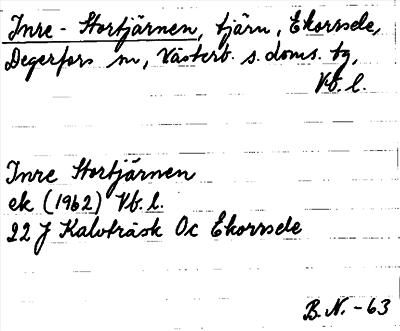 Inre-Stortjärnen, tjärn, Ekorrsele,
Degerfors sn, Västerb. s. doms. tg,
Vb. l.
Inre Stortjärnen
ek (1962) Vb. l.
22 J Kalvträsk Oc Ekorrsele
B. N. -63